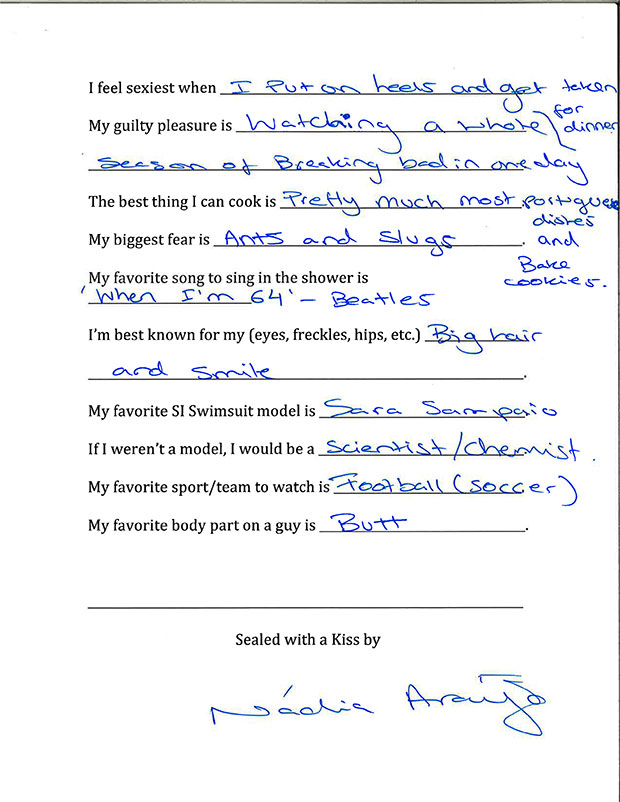 I feel sexiest when I Put on heels and get taken
for
My guilty pleasure is Watching a whole dinner
Season of Breaking bad in one day
The best thing I can cook is Pretty much most portuguese
dishes
My biggest fear is Ants and Slugs. and
Bake
My favorite song to sing in the shower is cookies.
'When I'm 64' - Beatles
I'm best known for my (eyes, freckles, hips, etc.) Big hair
and Smile.
My favorite SI Swimsuit model is Sara Sampaio
If I weren't a model, I would be a Scientist/Chemist.
My favorite sport/team to watch is Football (soccer)
My favorite body part on a guy is Butt.
Sealed with a Kiss by
Nádia Araújo